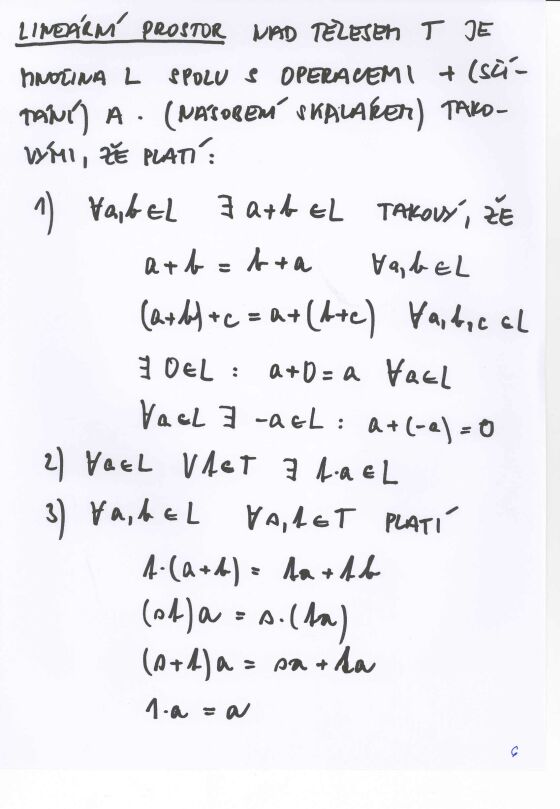 LINEÁRNÍ PROSTOR NAD TĚLESEM T JE
MNOŽINA L SPOLU S OPERACEMI + (SČÍ-
TÁNÍ) A · (NÁSOBENÍ SKALÁREM) TAKO-
VÝMI, ŽE PLATÍ:
1) ∀a,b∈L ∃ a+b ∈L TAKOVÝ, ŽE
a+b = b+a ∀a,b∈L
(a+b)+c = a+(b+c) ∀a,b,c∈L
∃ 0∈L : a+0=a ∀a∈L
∀a∈L ∃ -a∈L : a+(-a)=0
2) ∀a∈L ∀t∈T ∃ t·a∈L
3) ∀a,b∈L ∀s,t∈T PLATÍ
t·(a+b) = ta+tb
(st)a = s·(ta)
(s+t)a = sa+ta
1·a = a
6